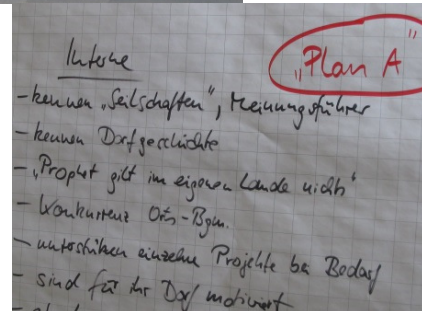 „Plan A"
Interne
- kennen „Seilschaften", Meinungsführer
- kennen Dorfgeschichte
- „Prophet gilt im eigenen Lande nicht"
- Konkurrenz Orts-Bgm.
- unterstützen einzelne Projekte bei Bedarf
- sind für ihr Dorf motiviert